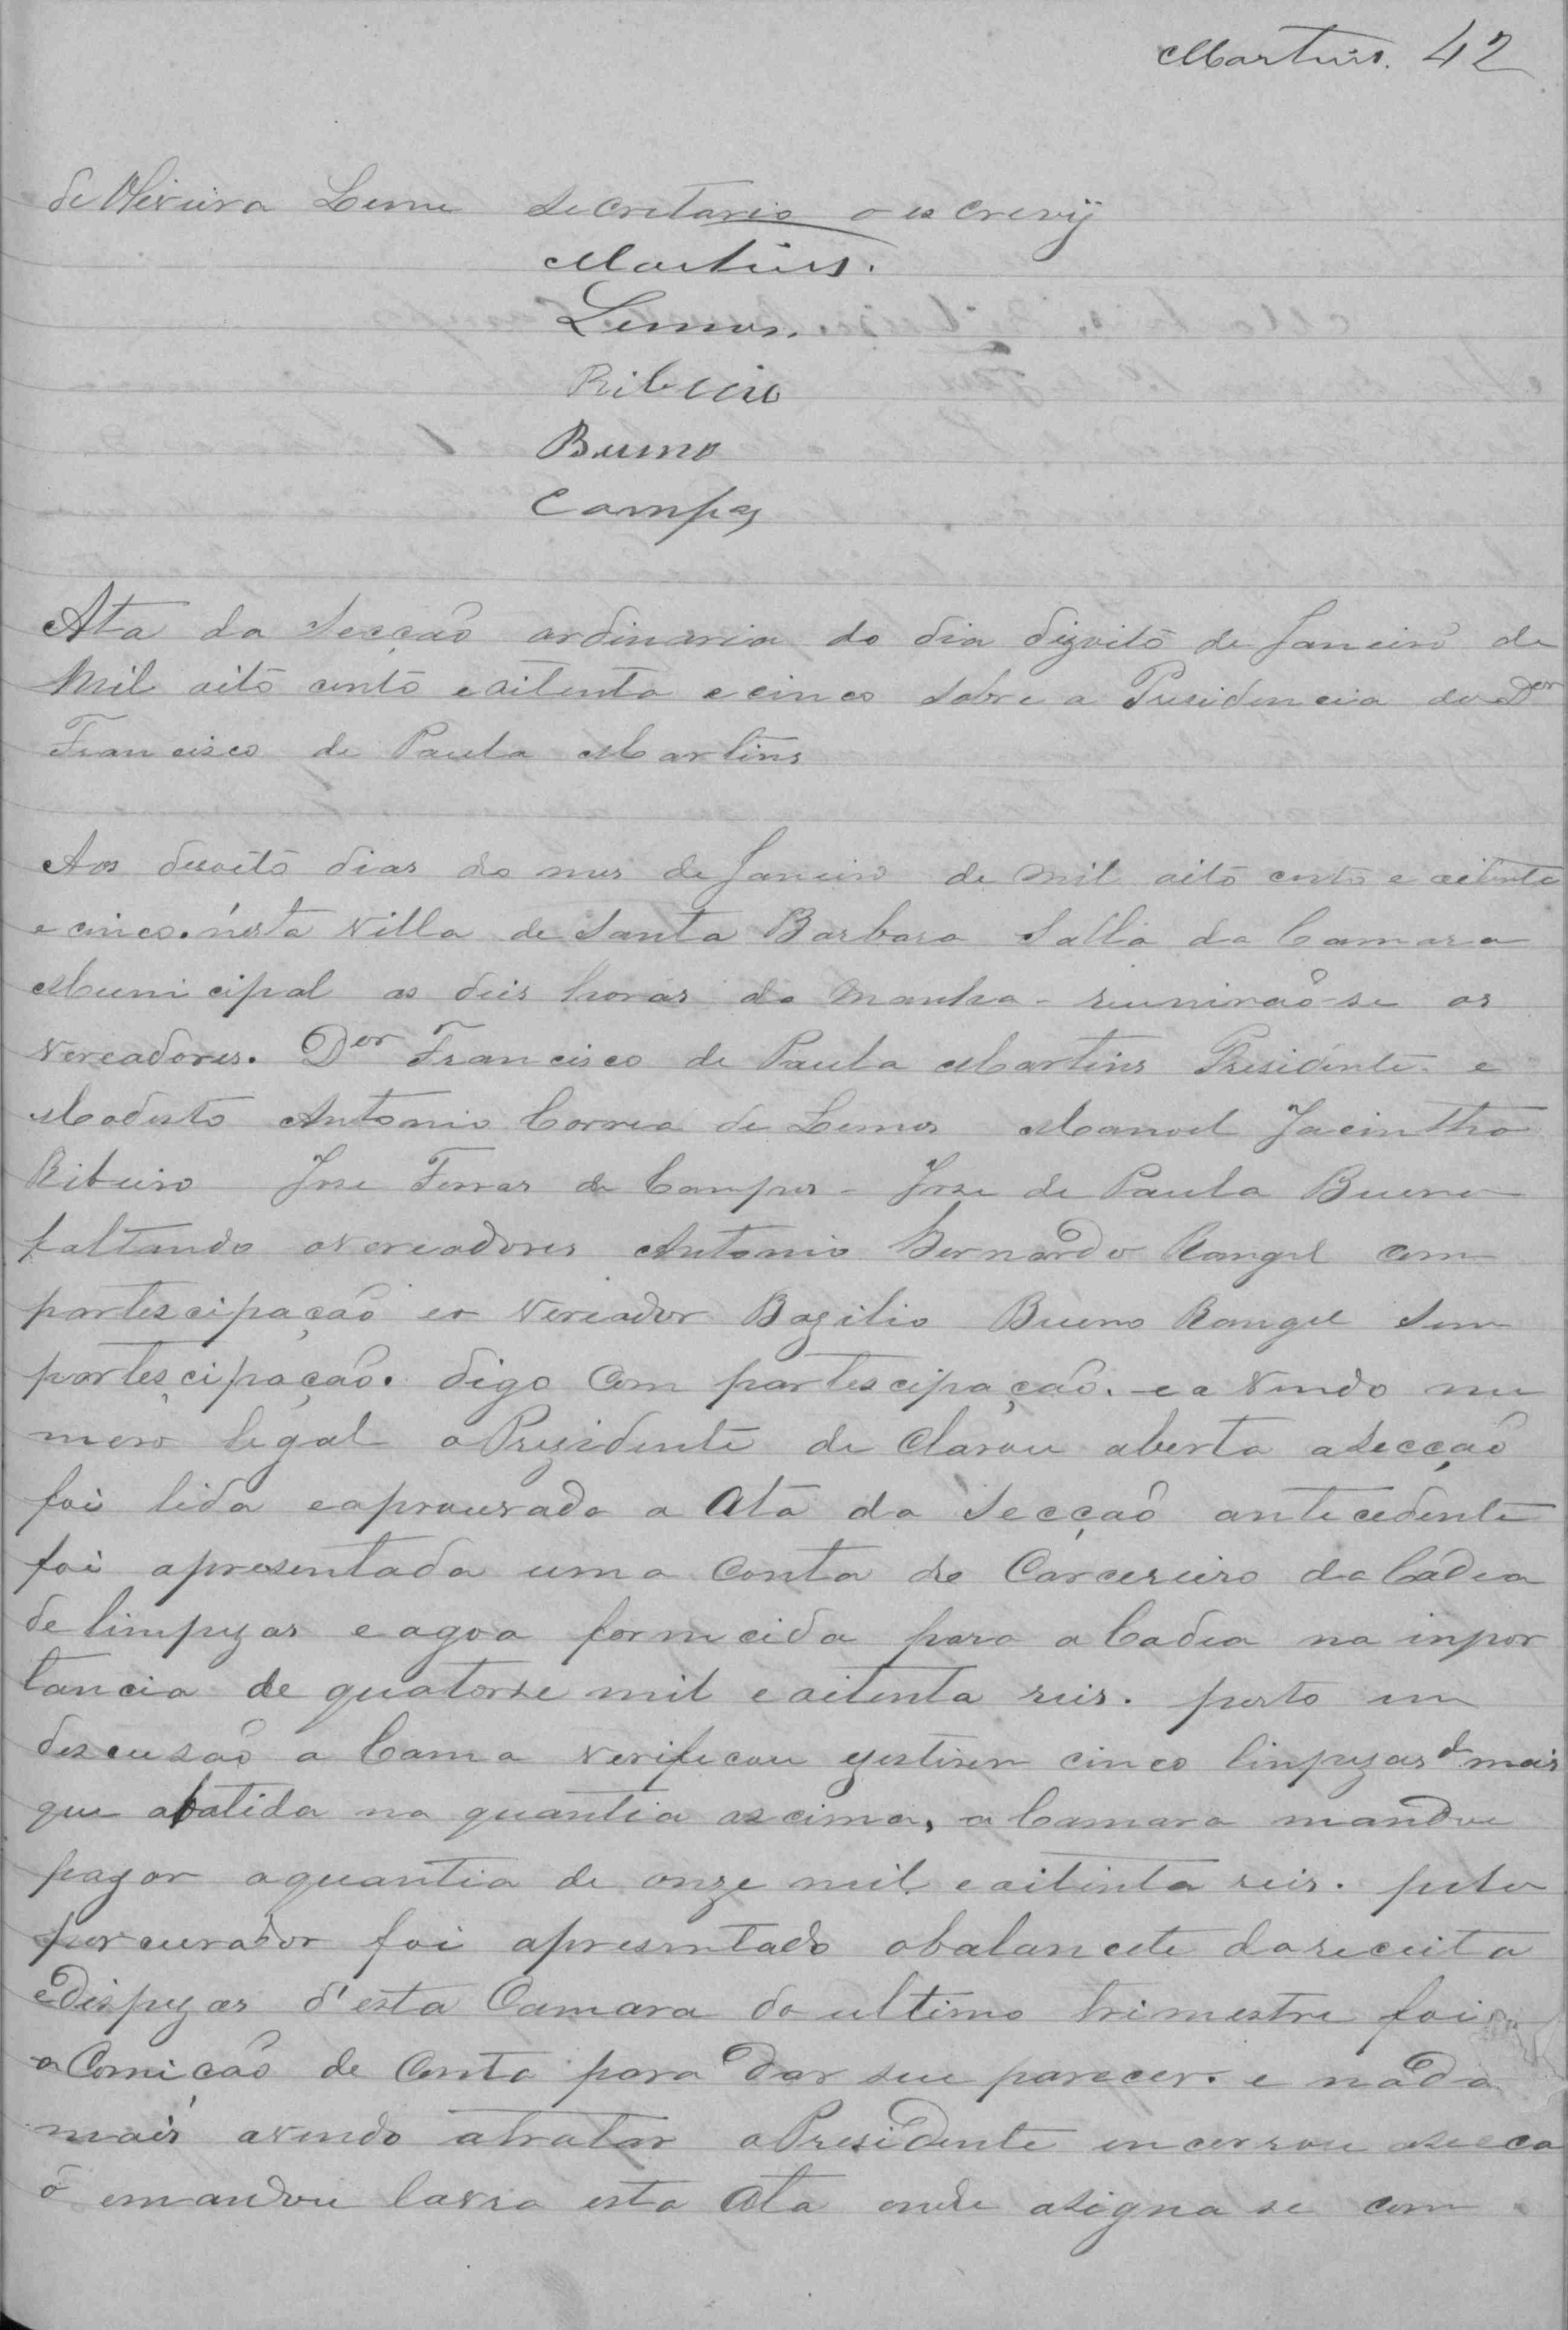 Martins. 42
de Oliveira Leme secretario o escrevÿ
Martins.
Lemos.
Ribeiro
Bueno
Campos
Ata da Secção ordinaria do dia dizoito de Janeiro de
Mil oito cento e oitenta e cinco sobre a Presidencia do Dor
Francisco de Paula Martins
Aos desoito dias do mes de Janeiro de mil oito cento e oitenta
e cinco. n'esta Villa de Santa Barbara Salla da Camara
Municipal as deis horas da manha - reunirão-se os
vereadores. Dor Francisco de Paula Martins Presidente - e
Modesto Antonio Correa de Lemos Manoel Jacintho
Ribeiro Jose Ferras de Campos - Jose de Paula Bueno
faltando overeadores Antonio Bernardo Rangel com
partescipação eo vereador Bazilio Bueno Rangel sem
partescipação. digo Com partescipação. e a vendo nu
mero legal o Prezidente de clarou aberta a secção
foi lida eaprouvada a Ata da Secção antecedente
foi apresentada uma Conta do Carcereiro da Cadea
de limpezas e agoa fornicida para a Cadea na inpor
tancia de quatorse mil e oitenta reis. posto em
descusão a Cama verificou ezestirem cinco linpezas de mais
que abatida na quantia ascima, a Camara mandou
pagar aquantia de onze mil e oitinta reis. pelo
porcurador foi apresentado obalancete dareceita
eDispezas d'esta Camara do ultimo trimestre foi
a Comição de Conta para Dar seu parecer. e nada
mais avendo atratar o Presidente encerrou asecca
õ emandou lavra esta Ata onde asigna se com